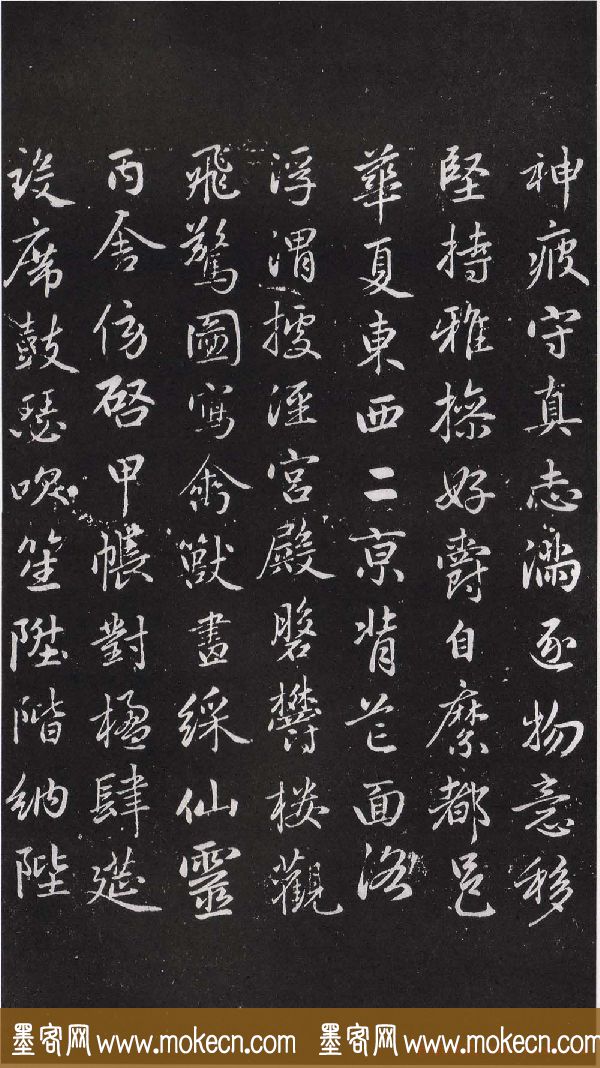 神疲守真志滿逐物意移
堅持雅操好爵自縻都邑
華夏東西二京背芒面洛
浮渭據涇宮殿磐欝楼觀
飛驚圖寫禽獸畫綵仙靈
丙舍傍啓甲帳對楹肆筵
設席鼓瑟吹笙陞階納陛
墨客网 www.mokecn.com 墨客网 www.mokecn.com